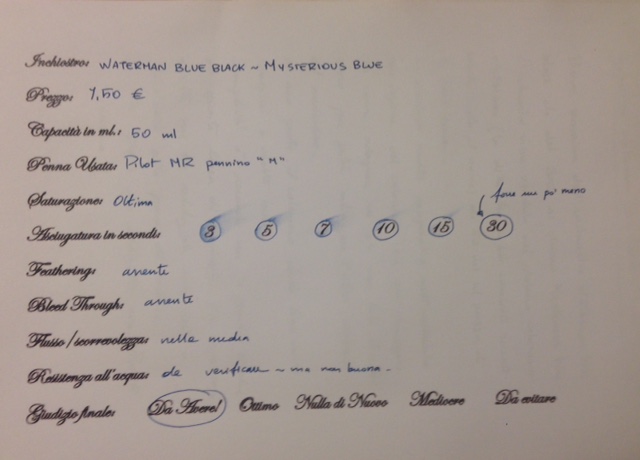 Inchiostro: WATERMAN BLUE BLACK ~ MYSTERIOUS BLUE
Prezzo: 7,50 €
Capacità in ml.: 50 ml
Penna Usata: Pilot MR pennino "M"
Saturazione: Ottima
forse un po' meno
Asciugatura in secondi: 3 5 7 10 15 30
Feathering: assente
Bleed Through: assente
Flusso/scorrevolezza: nella media
Resistenza all'acqua: da verificare ~ ma non buona -
Giudizio finale: Da Avere! Ottimo Nulla di Nuovo Mediocre Da evitare